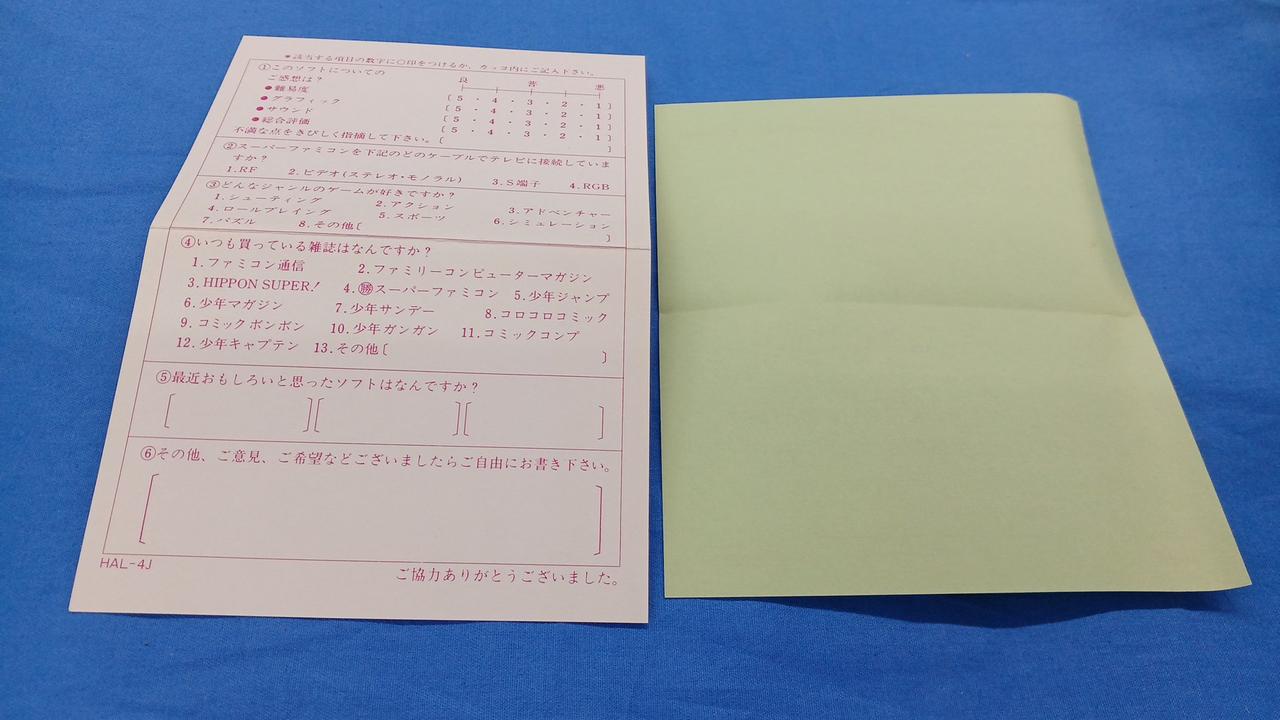 ●該当する項目の数字に○印をつけるか、カッコ内にご記入下さい。
①このソフトについての
ご感想は？
良 普 悪
●難易度 〔5・4・3・2・1〕
●グラフィック 〔5・4・3・2・1〕
●サウンド 〔5・4・3・2・1〕
●総合評価 〔5・4・3・2・1〕
不満な点をきびしく指摘して下さい。〔 〕
②スーパーファミコンを下記のどのケーブルでテレビに接続していま
すか？
1.RF 2.ビデオ(ステレオ・モノラル) 3.S端子 4.RGB
③どんなジャンルのゲームが好きですか？
1.シューティング 2.アクション 3.アドベンチャー
4.ロールプレイング 5.スポーツ 6.シミュレーション
7.パズル 8.その他〔 〕
④いつも買っている雑誌はなんですか？
1.ファミコン通信 2.ファミリーコンピューターマガジン
3.HIPPON SUPER! 4.㊙スーパーファミコン 5.少年ジャンプ
6.少年マガジン 7.少年サンデー 8.コロコロコミック
9.コミックボンボン 10.少年ガンガン 11.コミックコンプ
12.少年キャプテン 13.その他〔 〕
⑤最近おもしろいと思ったソフトはなんですか？
〔 〕〔 〕〔 〕
⑥その他、ご意見、ご希望などございましたらご自由にお書き下さい。
〔 〕
HAL-4J
ご協力ありがとうございました。